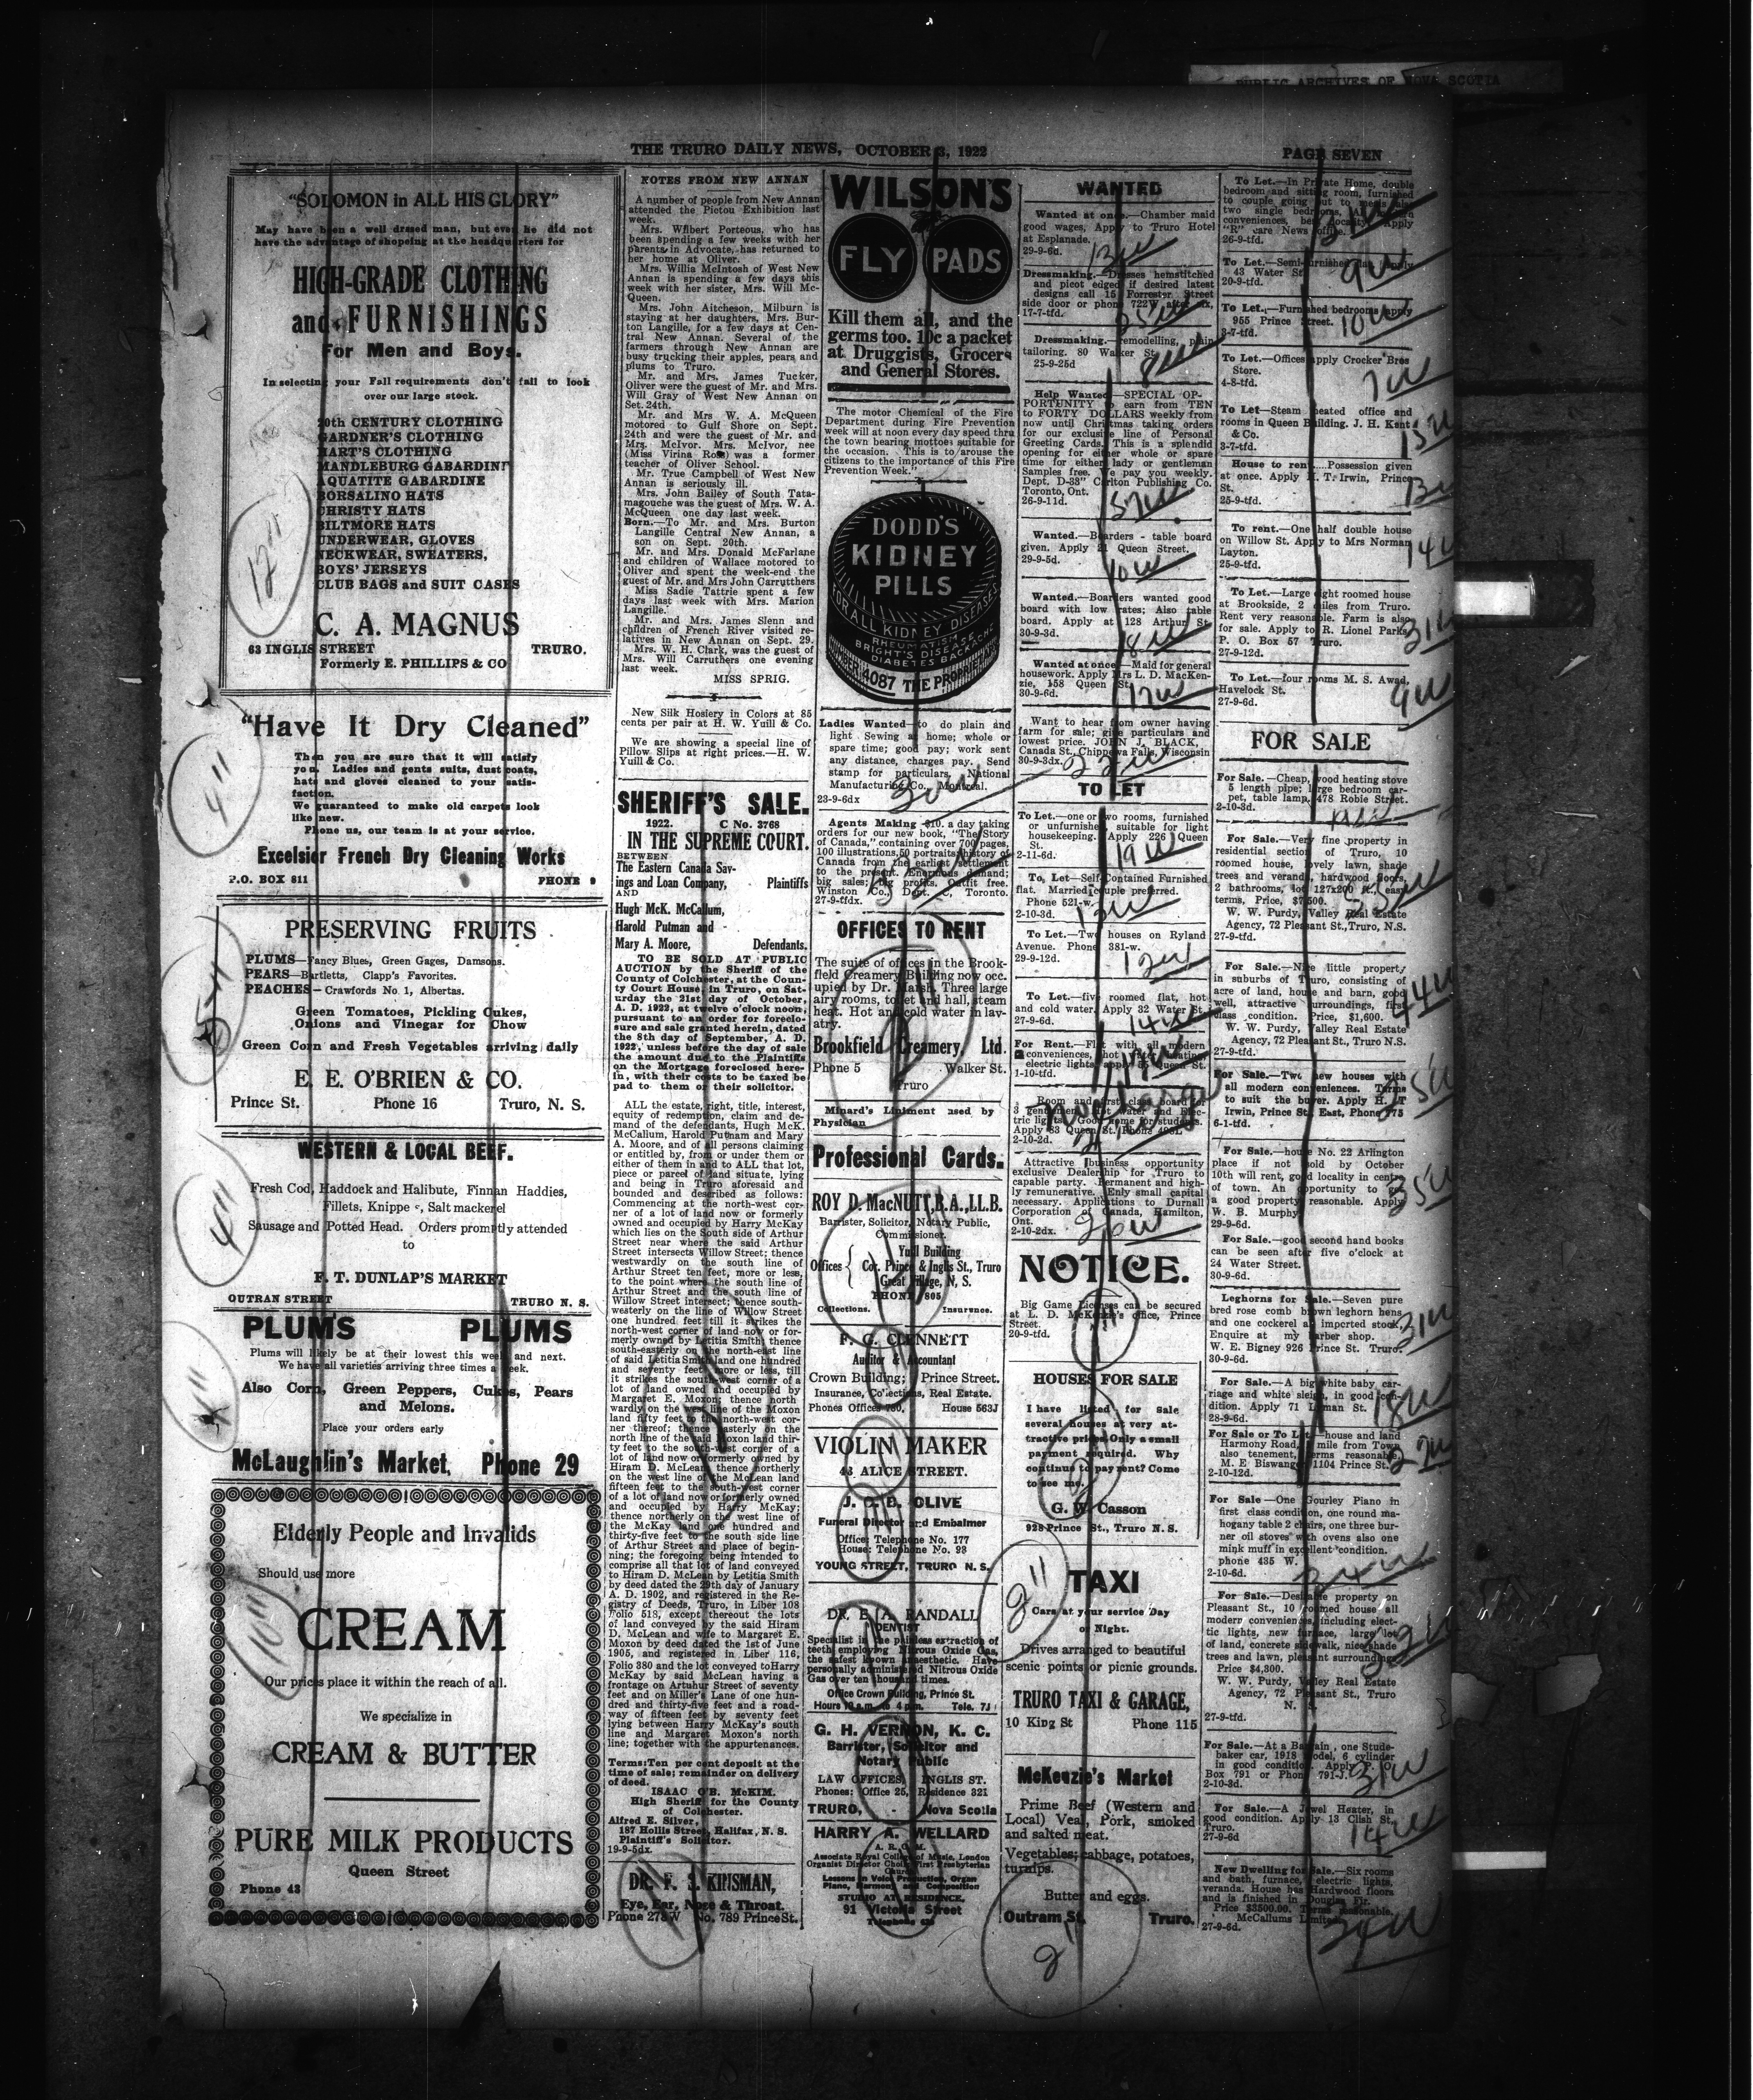 PUBLIC ARCHIVES OF NOVA SCOTIA
THE TRURO DAILY NEWS, OCTOBER 3, 1922
PAGE SEVEN
"SOLOMON in ALL HIS GLORY"
May have been a well dressed man, but even he did not
have the advantage of shopping at the headquarters for
HIGH-GRADE CLOTHING
and FURNISHINGS
For Men and Boys.
In selecting your Fall requirements don't fail to look
over our large stock.
20th CENTURY CLOTHING
GARDNER'S CLOTHING
HART'S CLOTHING
MANDLEBURG GABARDINE
AQUATITE GABARDINE
BORSALINO HATS
CHRISTY HATS
BILTMORE HATS
UNDERWEAR, GLOVES
NECKWEAR, SWEATERS,
BOYS' JERSEYS
CLUB BAGS and SUIT CASES
C. A. MAGNUS
63 INGLIS STREET TRURO.
Formerly E. PHILLIPS & CO
"Have It Dry Cleaned"
Then you are sure that it will satisfy
you. Ladies and gents suits, dust coats,
hats and gloves cleaned to your satis-
faction.
We guaranteed to make old carpets look
like new.
Phone us, our team is at your service.
Excelsior French Dry Cleaning Works
P.O. BOX 811 PHONE 9
PRESERVING FRUITS
PLUMS—Fancy Blues, Green Gages, Damsons.
PEARS—Bartletts, Clapp's Favorites.
PEACHES—Crawfords No. 1, Albertas.
Green Tomatoes, Pickling Cukes,
Onions and Vinegar for Chow
Green Corn and Fresh Vegetables arriving daily
E. E. O'BRIEN & CO.
Prince St. Phone 16 Truro, N. S.
WESTERN & LOCAL BEEF.
Fresh Cod, Haddock and Halibute, Finnan Haddies,
Fillets, Salt mackerel
Sausage and Potted Head. Orders promptly attended
to
F. T. DUNLAP'S MARKET
OUTRAN STREET TRURO N. S.
PLUMS PLUMS
Plums will likely be at their lowest this week and next.
We have all varieties arriving three times a week.
Also Corn, Green Peppers, Cukes, Pears
and Melons.
Place your orders early
McLaughlin's Market, Phone 29
Elderly People and Invalids
Should use more
CREAM
Our prices place it within the reach of all.
We specialize in
CREAM & BUTTER
PURE MILK PRODUCTS
Queen Street
Phone 43
NOTES FROM NEW ANNAN
A number of people from New Annan
attended the Pictou Exhibition last
week.
Mrs. Wilbert Porteous, who has
been spending a few weeks with her
parents in Advocate, has returned to
her home at Oliver.
Mrs. Willis McIntosh of West New
Annan is spending a few days this
week with her sister, Mrs. Will Mc-
Queen.
Mrs. John Aitcheson, Milburn is
staying at her daughters, Mrs. Bur-
ton Langille, for a few days at Cen-
tral New Annan. Several of the
farmers through New Annan are
busy trucking their apples, pears and
plums to Truro.
Mr. and Mrs. James Tucker,
Oliver were the guest of Mr. and Mrs.
Will Gray of West New Annan on
Set. 24th.
Mr. and Mrs W. A. McQueen
motored to Gulf Shore on Sept.
24th and were the guest of Mr. and
Mrs. McIvor. Mrs. McIvor, nee
(Miss Virina Ross) was a former
teacher of Oliver School.
Mr. True Campbell of West New
Annan is seriously ill.
Mrs. John Bailey of South Tata-
magouche was the guest of Mrs. W. A.
McQueen one day last week.
Born.—To Mr. and Mrs. Burton
Langille Central New Annan, a
son on Sept. 20th.
Mr. and Mrs. Donald McFarlane
and children of Wallace motored to
Oliver and spent the week-end the
guest of Mr. and Mrs John Carrutthers
Miss Sadie Tattrie spent a few
days last week with Mrs. Marion
Langille.
Mr. and Mrs. James Slenn and
children of French River visited re-
latives in New Annan on Sept. 29.
Mrs. W. H. Clark, was the guest of
Mrs. Will Carruthers one evening
last week.
MISS SPRIG.
New Silk Hosiery in Colors at 85
cents per pair at H. W. Yuill & Co.
We are showing a special line of
Pillow Slips at right prices.—H. W.
Yuill & Co.
SHERIFF'S SALE.
1922. C No. 3768
IN THE SUPREME COURT.
BETWEEN
The Eastern Canada Sav-
ings and Loan Company, Plaintiffs
AND
Hugh McK. McCallum,
Harold Putman and
Mary A. Moore, Defendants.
TO BE SOLD AT PUBLIC
AUCTION by the Sheriff of the
County of Colchester, at the Coun-
ty Court House, in Truro, on Sat-
urday the 21st day of October,
A. D. 1922, at twelve o'clock noon,
pursuant to an order for foreclo-
sure and sale granted herein, dated
the 8th day of September, A. D.
1922, unless before the day of sale
the amount due to the Plaintiffs
on the Mortgage foreclosed here-
in, with their costs to be taxed be
pad to them or their solicitor.
ALL the estate, right, title, interest,
equity of redemption, claim and de-
mand of the defendants, Hugh McK.
McCallum, Harold Putnam and Mary
A. Moore, and of all persons claiming
or entitled by, from or under them or
either of them in and to ALL that lot,
piece or parcel of land situate, lying
and being in Truro aforesaid and
bounded and described as follows:
Commencing at the north-west cor-
ner of a lot of land now or formerly
owned and occupied by Harry McKay
which lies on the South side of Arthur
Street near where the said Arthur
Street intersects Willow Street; thence
westwardly on the south line of
Arthur Street ten feet, more or less,
to the point where the south line of
Arthur Street and the south line of
Willow Street intersect; thence south-
westerly on the line of Willow Street
one hundred feet till it strikes the
north-west corner of land now or for-
merly owned by Letitia Smith; thence
south-easterly on the north-east line
of said Letitia Smith land one hundred
and seventy feet more or less, till
it strikes the south-west corner of a
lot of land owned and occupied by
Margaret E. Moxon; thence north
wardly on the west line of the Moxon
land fifty feet to the north-west cor-
ner thereof; thence easterly on the
north line of the said Moxon land thir-
ty feet to the south-west corner of a
lot of land now or formerly owned by
Hiram D. McLean; thence northerly
on the west line of the McLean land
fifteen feet to the south-west corner
of a lot of land now or formerly owned
and occupied by Harry McKay;
thence northerly on the west line of
the McKay land one hundred and
thirty-five feet to the south side line
of Arthur Street and place of begin-
ning; the foregoing being intended to
comprise all that lot of land conveyed
to Hiram D. McLean by Letitia Smith
by deed dated the 29th day of January
A. D. 1902, and registered in the Re-
gistry of Deeds, Truro, in Liber 108
Folio 518, except thereout the lots
of land conveyed by the said Hiram
D. McLean and wife to Margaret E.
Moxon by deed dated the 1st of June
1905, and registered in Liber 116,
Folio 380 and the lot conveyed to Harry
McKay by said McLean having a
frontage on Artuhur Street of seventy
feet and on Miller's Lane of one hun-
dred and thirty-five feet and a road-
way of fifteen feet by seventy feet
lying between Harry McKay's south
line and Margaret Moxon's north
line; together with the appurtenances.
Terms: Ten per cent deposit at the
time of sale; remainder on delivery
of deed.
ISAAC O'B. McKIM.
High Sheriff for the County
of Colchester.
Alfred E. Silver,
187 Hollis Street, Halifax, N. S.
Plaintiff's Solicitor.
19-9-5dx.
DR. F. S. KINSMAN,
Eye, Ear, Nose & Throat.
Phone 273W No. 789 Prince St.
WILSON'S
FLY PADS
Kill them all, and the
germs too. 10c a packet
at Druggists, Grocers
and General Stores.
The motor Chemical of the Fire
Department during Fire Prevention
week will at noon every day speed thru
the town bearing mottoes suitable for
the occasion. This is to arouse the
citizens to the importance of this Fire
Prevention Week."
DODD'S
KIDNEY
PILLS
FOR ALL KIDNEY DISEASES
RHEUMATISM
BRIGHT'S DISEASE
DIABETES BACKACHE
NUMBER 4087 THE PROPRIETARY
Ladies Wanted—to do plain and
light Sewing at home; whole or
spare time; good pay; work sent
any distance, charges pay. Send
stamp for particulars. National
Manufacturing Co., Montreal.
23-9-6dx
Agents Making $10. a day taking
orders for our new book, "The Story
of Canada," containing over 700 pages,
100 illustrations, 50 portraits history of
Canada from the earliest settlement
to the present. Enormous demand;
big sales; big profits. Outfit free.
Winston Co., Dept. C, Toronto.
27-9-tfdx.
OFFICES TO RENT
The suite of offices in the Brook-
field Creamery Building now occ.
upied by Dr. Marsh. Three large
airy rooms, toilet and hall, steam
heat. Hot and cold water in lav-
atry.
Brookfield Creamery, Ltd.
Phone 5 Walker St.
Truro
Minard's Liniment used by
Physician
Professional Cards.
ROY D. MacNUTT, B.A., LL.B.
Barrister, Solicitor, Notary Public,
Commissioner.
Yuill Building
Offices Cor. Prince & Inglis St., Truro
Great Village, N. S.
PHONE 805
Collections. Insurance.
F. G. CLENNETT
Auditor & Accountant
Crown Building; Prince Street.
Insurance, Collections, Real Estate.
Phones Offices 750, House 563J
VIOLIN MAKER
43 ALICE STREET.
J. C. B. OLIVE
Funeral Director and Embalmer
Office: Telephone No. 177
House: Telephone No. 93
YOUNG STREET, TRURO N. S.
DR. E. A. RANDALL
DENTIST
Specialist in the painless extraction of
teeth employing Nitrous Oxide Gas,
the safest known anaesthetic. Have
personally administered Nitrous Oxide
Gas over ten thousand times.
Office Crown Building, Prince St.
Hours 10 a.m. to 4 p.m. Tele. 7J
G. H. VERNON, K. C.
Barrister, Solicitor and
Notary Public
LAW OFFICES, INGLIS ST.
Phones: Office 25, Residence 321
TRURO, - Nova Scotia
HARRY A. WELLARD
A. R. C. M.
Associate Royal College of Music, London
Organist Director Choir First Presbyterian
Church
Lessons in Voice Production, Organ
Piano, Harmony and Composition
STUDIO AT RESIDENCE.
91 Victoria Street
WANTED
Wanted at once.—Chamber maid
good wages, Apply to Truro Hotel
at Esplanade.
29-9-6d.
Dressmaking.—Dresses hemstitched
and picot edged if desired latest
designs call 15 Forrester Street
side door or phone 722W after six.
17-7-tfd.
Dressmaking.—remodelling, plain
tailoring. 80 Walker St.
25-9-25d
Help Wanted—SPECIAL OP-
PORTUNITY to earn from TEN
to FORTY DOLLARS weekly from
now until Christmas taking orders
for our exclusive line of Personal
Greeting Cards. This is a splendid
opening for either whole or spare
time for either lady or gentleman
Samples free. We pay you weekly.
Dept. D-38" Carlton Publishing Co.
Toronto, Ont.
26-9-11d.
Wanted.—Boarders - table board
given. Apply 21 Queen Street.
29-9-5d.
Wanted.—Boarders wanted good
board with low rates; Also table
board. Apply at 128 Arthur St
30-9-3d.
Wanted at once—Maid for general
housework. Apply Mrs L. D. MacKen-
zie, 158 Queen St.
30-9-6d.
Want to hear from owner having
farm for sale; give particulars and
lowest price. JOHN J. BLACK,
Canada St., Chippewa Falls, Wisconsin
30-9-3dx.
TO LET
To Let.—one or two rooms, furnished
or unfurnished, suitable for light
housekeeping. Apply 226 Queen
St.
2-11-6d.
To, Let—Self-Contained Furnished
flat. Married couple preferred.
Phone 521-w.
2-10-3d.
To Let.—Two houses on Ryland
Avenue. Phone 381-w.
29-9-12d.
To Let.—five roomed flat, hot
and cold water. Apply 32 Water St.
27-9-6d.
For Rent.—Flat with all modern
conveniences, hot water heating
electric lights, apply 85 Queen St.
1-10-tfd.
Room and first class board for
3 gentlemen. Hot water and Elec-
tric lights. Good home for students.
Apply 83 Queen St. Phone
2-10-2d.
Attractive business opportunity
exclusive Dealership for Truro to
capable party. Permanent and high-
ly remunerative. Enly small capital
necessary. Applications to Durnall
Corporation of Canada, Hamilton,
Ont.
2-10-2dx.
NOTICE.
Big Game Licenses can be secured
at L. D. McKenzie's office, Prince
Street.
20-9-tfd.
HOUSES FOR SALE
I have listed for Sale
several houses at very at-
tractive prices. Only a small
payment required. Why
continue to pay rent? Come
to see me.
G. W. Casson
928 Prince St., Truro N. S.
TAXI
Cars at your service Day
or Night.
Drives arranged to beautiful
scenic points or picnic grounds.
TRURO TAXI & GARAGE,
10 King St Phone 115
McKenzie's Market
Prime Beef (Western and
Local) Veal, Pork, smoked
and salted meat.
Vegetables; cabbage, potatoes,
turnips.
Butter and eggs.
Outram St. Truro.
To Let.—In Private Home, double
bedroom and sitting room, furnished
to couple going out to meals also
two single bedrooms, All modern
conveniences, best locality. Apply
"R" care News office.
26-9-tfd.
To Let.—Semi-furnished flat Apply
43 Water St.
20-9-tfd.
To Let.—Furnished bedrooms apply
955 Prince Street.
3-7-tfd.
To Let.—Offices apply Crocker Bros
Store.
4-8-tfd.
To Let—Steam heated office and
rooms in Queen Building. J. H. Kent
& Co.
3-7-tfd.
House to rent....Possession given
at once. Apply H. T. Irwin, Prince
St.
25-9-tfd.
To rent.—One half double house
on Willow St. Apply to Mrs Norman
Layton.
25-9-tfd.
To Let.—Large eight roomed house
at Brookside, 2 miles from Truro.
Rent very reasonable. Farm is also
for sale. Apply to R. Lionel Parks
P. O. Box 57 Truro.
27-9-12d.
To Let.—four rooms M. S. Awad,
Havelock St.
27-9-6d.
FOR SALE
For Sale.—Cheap, wood heating stove
5 length pipe; large bedroom car-
pet, table lamp, 478 Robie Street.
2-10-3d.
For Sale.—Very fine property in
residential section of Truro, 10
roomed house, lovely lawn, shade
trees and veranda, hardwood floors,
2 bathrooms, lot 127x200 ft., easy
terms, Price, $7,500.
W. W. Purdy, Valley Real Estate
Agency, 72 Pleasant St., Truro, N.S.
27-9-tfd.
For Sale.—Nice little property
in suburbs of Truro, consisting of
acre of land, house and barn, good
well, attractive surroundings, first
class condition. Price, $1,600.
W. W. Purdy, Valley Real Estate
Agency, 72 Pleasant St., Truro N.S.
27-9-tfd.
For Sale.—Two new houses with
all modern conveniences. Terms
to suit the buyer. Apply H. T
Irwin, Prince St. East, Phone 775
6-1-tfd.
For Sale.—house No. 22 Arlington
place if not sold by October
10th will rent, good locality in centre
of town. An opportunity to get
a good property reasonable. Apply
W. B. Murphy
29-9-6d.
For Sale.—good second hand books
can be seen after five o'clock at
24 Water Street.
30-9-6d.
Leghorns for Sale.—Seven pure
bred rose comb brown leghorn hens
and one cockerel all imported stock.
Enquire at my barber shop.
W. E. Bigney 926 Prince St. Truro.
30-9-6d.
For Sale.—A big white baby car-
riage and white sleigh, in good con-
dition. Apply 71 Lyman St.
28-9-6d.
For Sale or To Let.—house and land
Harmony Road, mile from Town
also tenement, terms reasonable.
M. E Biswanger 1104 Prince St.
2-10-12d.
For Sale—One Gourley Piano in
first class condition, one round ma-
hogany table 2 chairs, one three bur-
ner oil stoves with ovens also one
mink muff in excellent condition.
phone 435 W.
2-10-6d.
For Sale.—Desirable property on
Pleasant St., 10 roomed house all
modern conveniences, including elect-
tic lights, new furnace, large lot
of land, concrete sidewalk, nice shade
trees and lawn, pleasant surroundings
Price $4,800.
W. W. Purdy, Valley Real Estate
Agency, 72 Pleasant St., Truro
N. S.
27-9-tfd.
For Sale.—At a Bargain, one Stude-
baker car, 1918 model, 6 cylinder
in good condition. Apply P. O.
Box 791 or Phone 791-J.
2-10-3d.
For Sale.—A Jewel Heater, in
good condition. Apply 13 Clish St.
Truro.
27-9-6d
New Dwelling for Sale.—Six rooms
and bath, furnace, electric lights,
veranda. House has Hardwood floors
and is finished in Douglas Fir.
Price $3500.00. Terms reasonable.
McCallums Limited
27-9-6d.